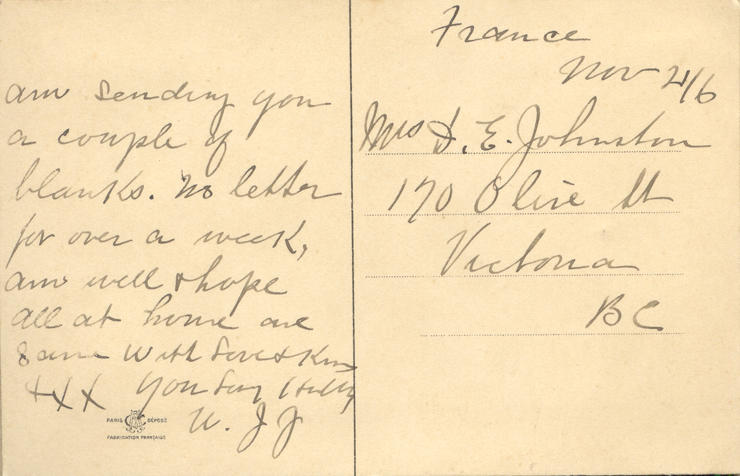 am sending you
a couple of
blanks. No letter
for over a week,
am well & hope
all at home are
same With Love & Kiss
XXX you
W. J J
PARIS DÉPOSÉ
FABRICATION FRANÇAISE
France
Nov
Mrs E. Johnston
170 Olive St
Victoria
BC